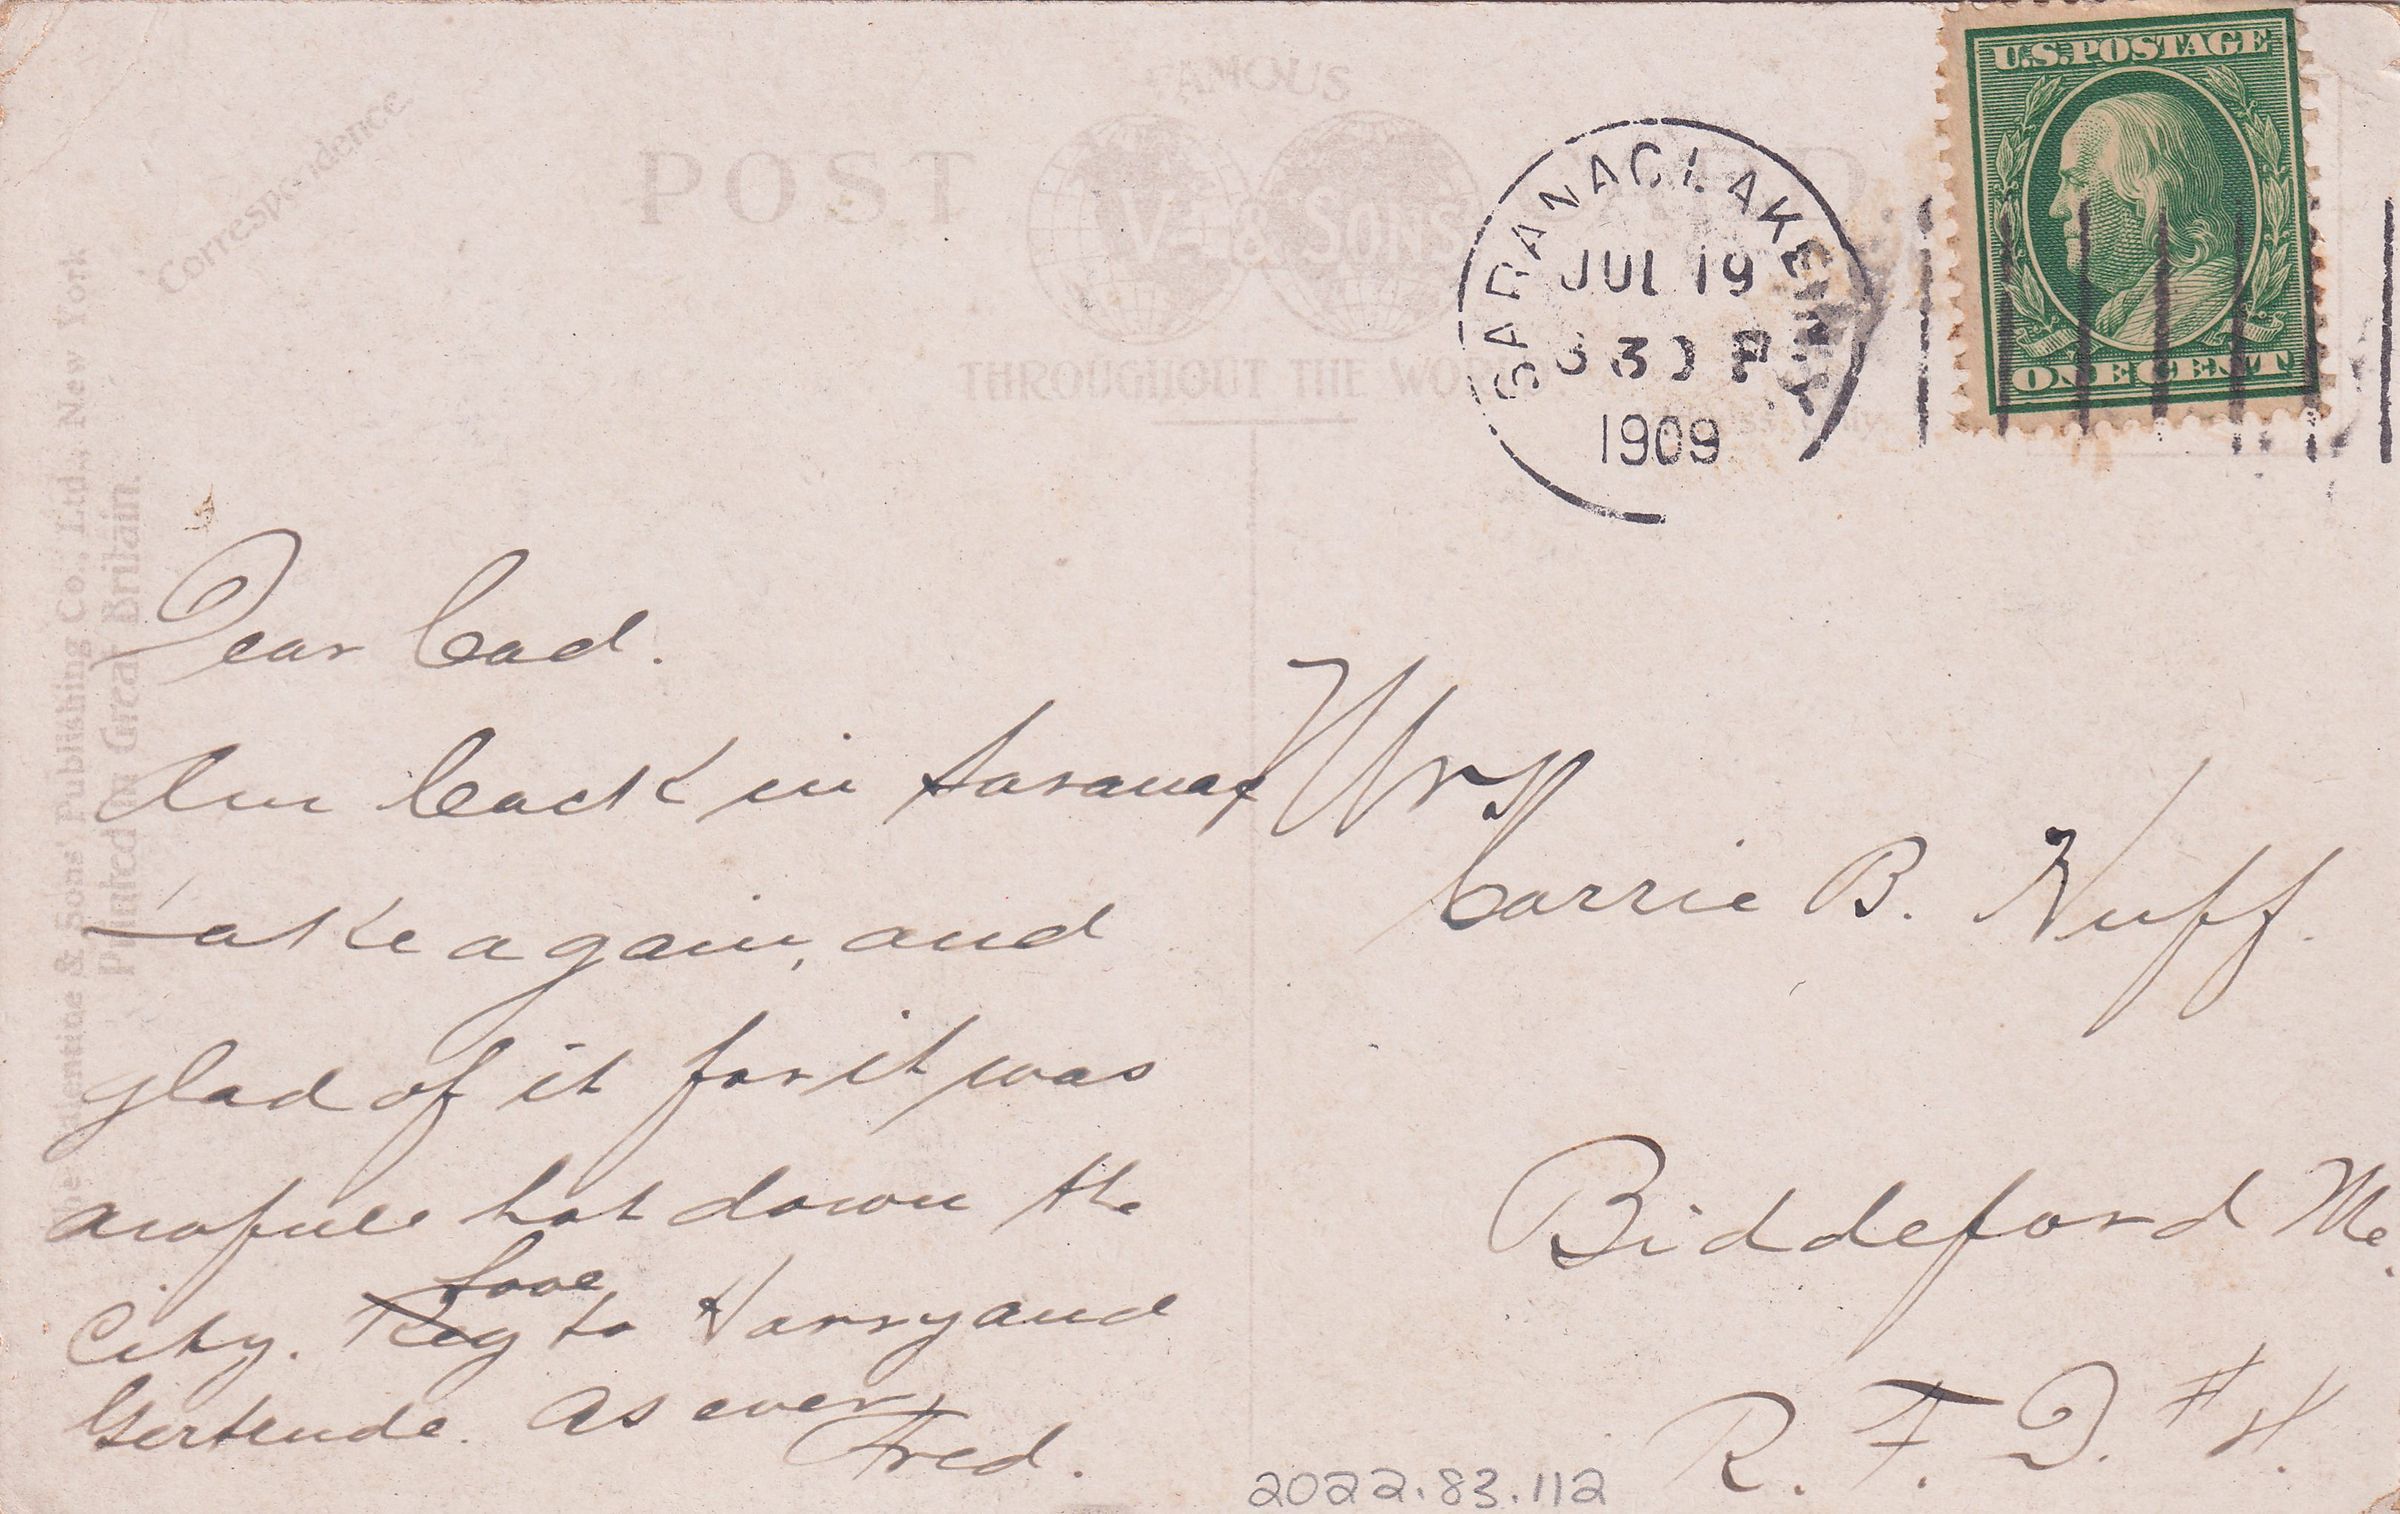 Correspondence
FAMOUS
POST
& SONS
THROUGHOUT THE WO
SARANAC LAKE N.Y.
JUL 19
30 P
1909
U.S. POSTAGE
ONE CENT
Dear Cad.
Am back in Saranac
Lake again, and
glad of it for it was
awfull hot down the
City. Reg love to Harry and
Gertrude. As ever,
Fred.
Mrs
Carrie B. Huff.
Biddeford Me.
R. F. D. # 4.
2022.83.112
Valentine & Sons' Publishing Co., Ltd., New York
Printed in Great Britain.